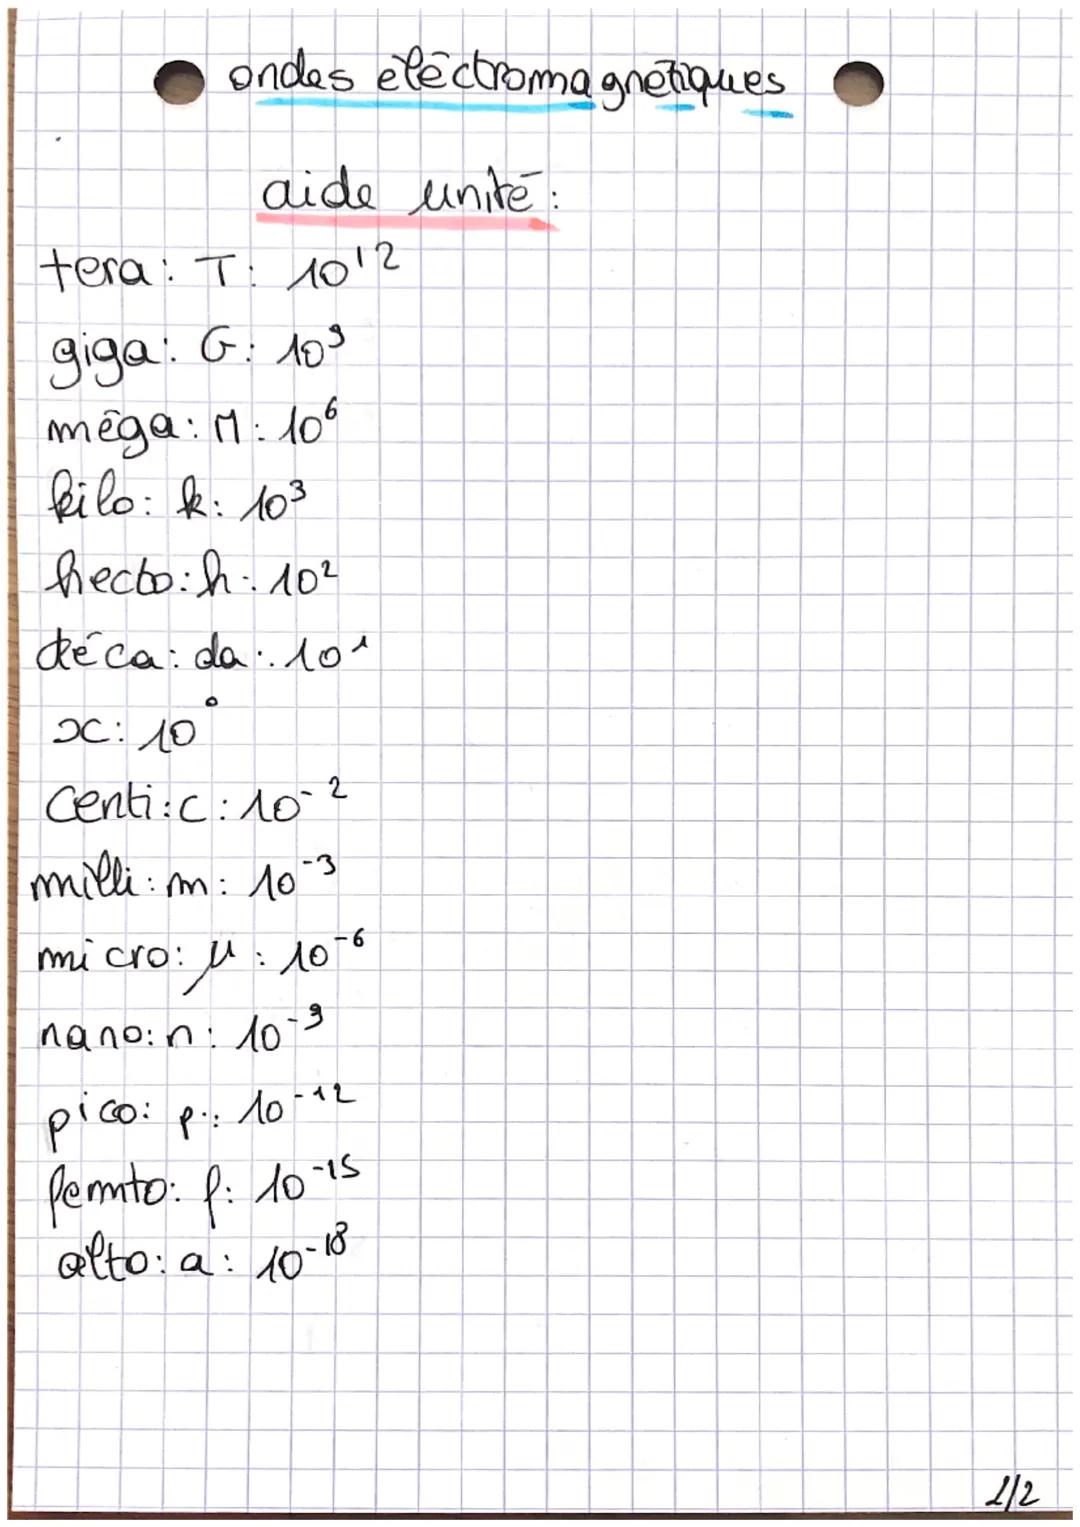 ondes eléctromagnétiques
aide unité:
tera: T: 10¹²
giga: G: 10⁹
méga: M: 10⁶
kilo: k: 10³
hecto: h: 10²
déca: da: 10¹
x: 10⁰
centi: c: 10⁻²
milli: m: 10⁻³
micro: µ: 10⁻⁶
nano: n: 10⁻⁹
pico: p: 10⁻¹²
femto: f: 10⁻¹⁵
alto: a: 10⁻¹⁸
1/2